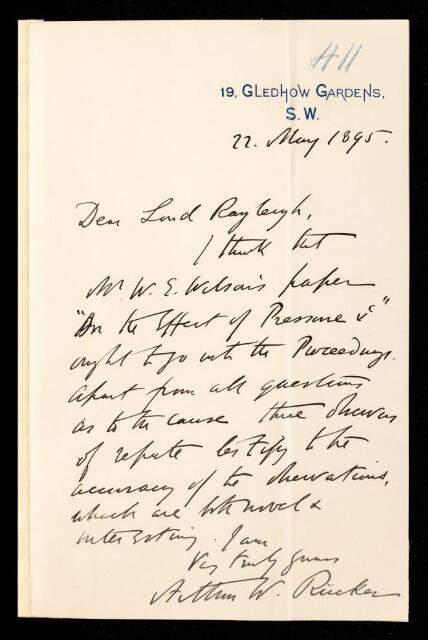 411
19, GLEDHOW GARDENS,
S.W.
22. May 1895.
Dear Lord Rayleigh,
I think that
Mr W. E. Wilson's paper
"On the Effect of Pressure &"
ought to go into the Proceedings.
Apart from all questions
as to the cause three observers
of repute testify to the
accuracy of the observations,
which are both novel &
interesting. I am
Very truly yours
Arthur W. Rücker